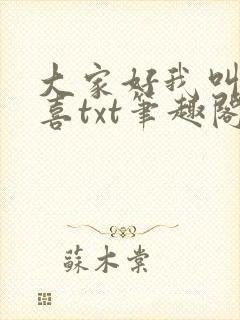 大家好我叫
喜txt笔趣阁
苏木棠